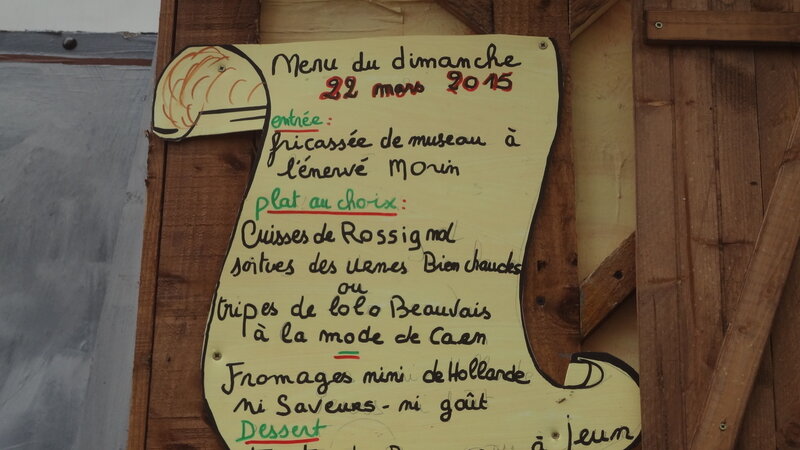 Menu du dimanche
22 mars 2015
entrée :
fricassée de museau à
l'énervé Morin
plat au choix :
Cuisses de Rossignol
soitves des urnes Bien chaudes
ou
tripes de lolo Beauvais
à la mode de Caen
Fromages mini de Hollande
ni Saveurs - ni goût
Dessert
à jeun